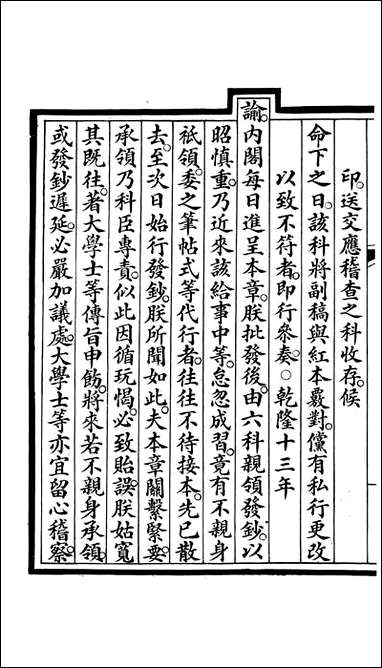 印送交應稽查之科收存候
命下之日該科將副稿與紅本覈對儻有私行更改
以致不符者即行參奏○乾隆十三年
諭內閣每日進呈本章朕批發後由六科親領發鈔以
昭慎重乃近來該給事中等怠忽成習竟有不親身
祇領委之筆帖式等代行者往往不待接本先已散
去至次日始行發鈔朕所聞如此夫本章關繫緊要
承領乃科臣專責似此因循玩愒必致貽誤朕姑寬
其既往著大學士等傳旨申飭將來若不親身承領
或發鈔遲延必嚴加議處大學士等亦宜留心稽察